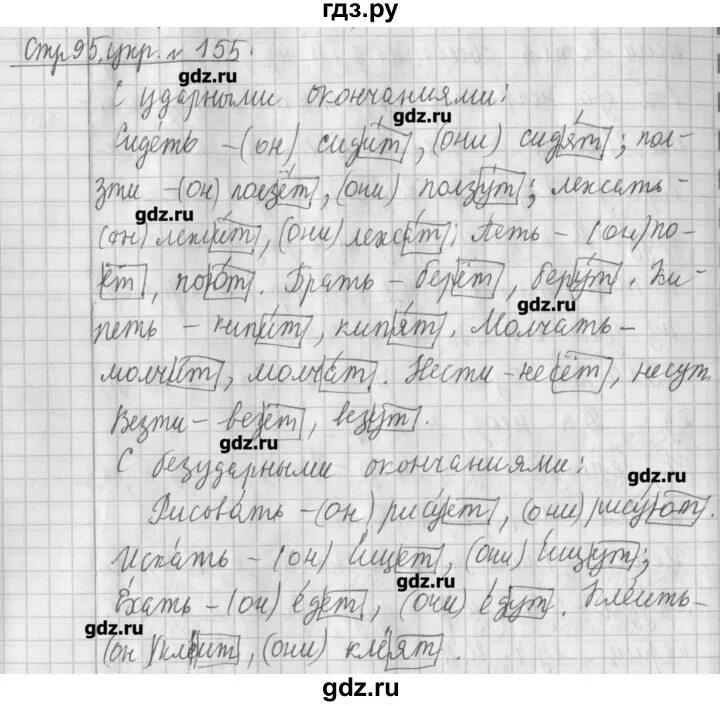 гдз.ру
Стр 95, упр. № 155.
gdz.ru
С ударными окончаниями:
gdz.ru
Сидеть – (он) сидит, (они) сидят; пол-
зти – (он) ползёт, (они) ползут; лежать –
gdz.ru
(он) лежит, (они) лежат; Петь – (он) по-
ёт, поют. Брать – берёт, берут. Ки-
gdz.ru
петь – кипит, кипят. Молчать –
молчит, молчат. Нести – несёт, несут.
gdz.ru
Везти – везёт, везут.
gdz.ru
С безударными окончаниями:
gdz.ru
Рисовать – (он) рисует, (они) рисуют.
Искать – (он) ищет, (они) ищут;
gdz.ru
Ехать – (он) едет, (они) едут. Клеить –
gdz.ru
(он) клеит, (они) клеят.
gdz.ru